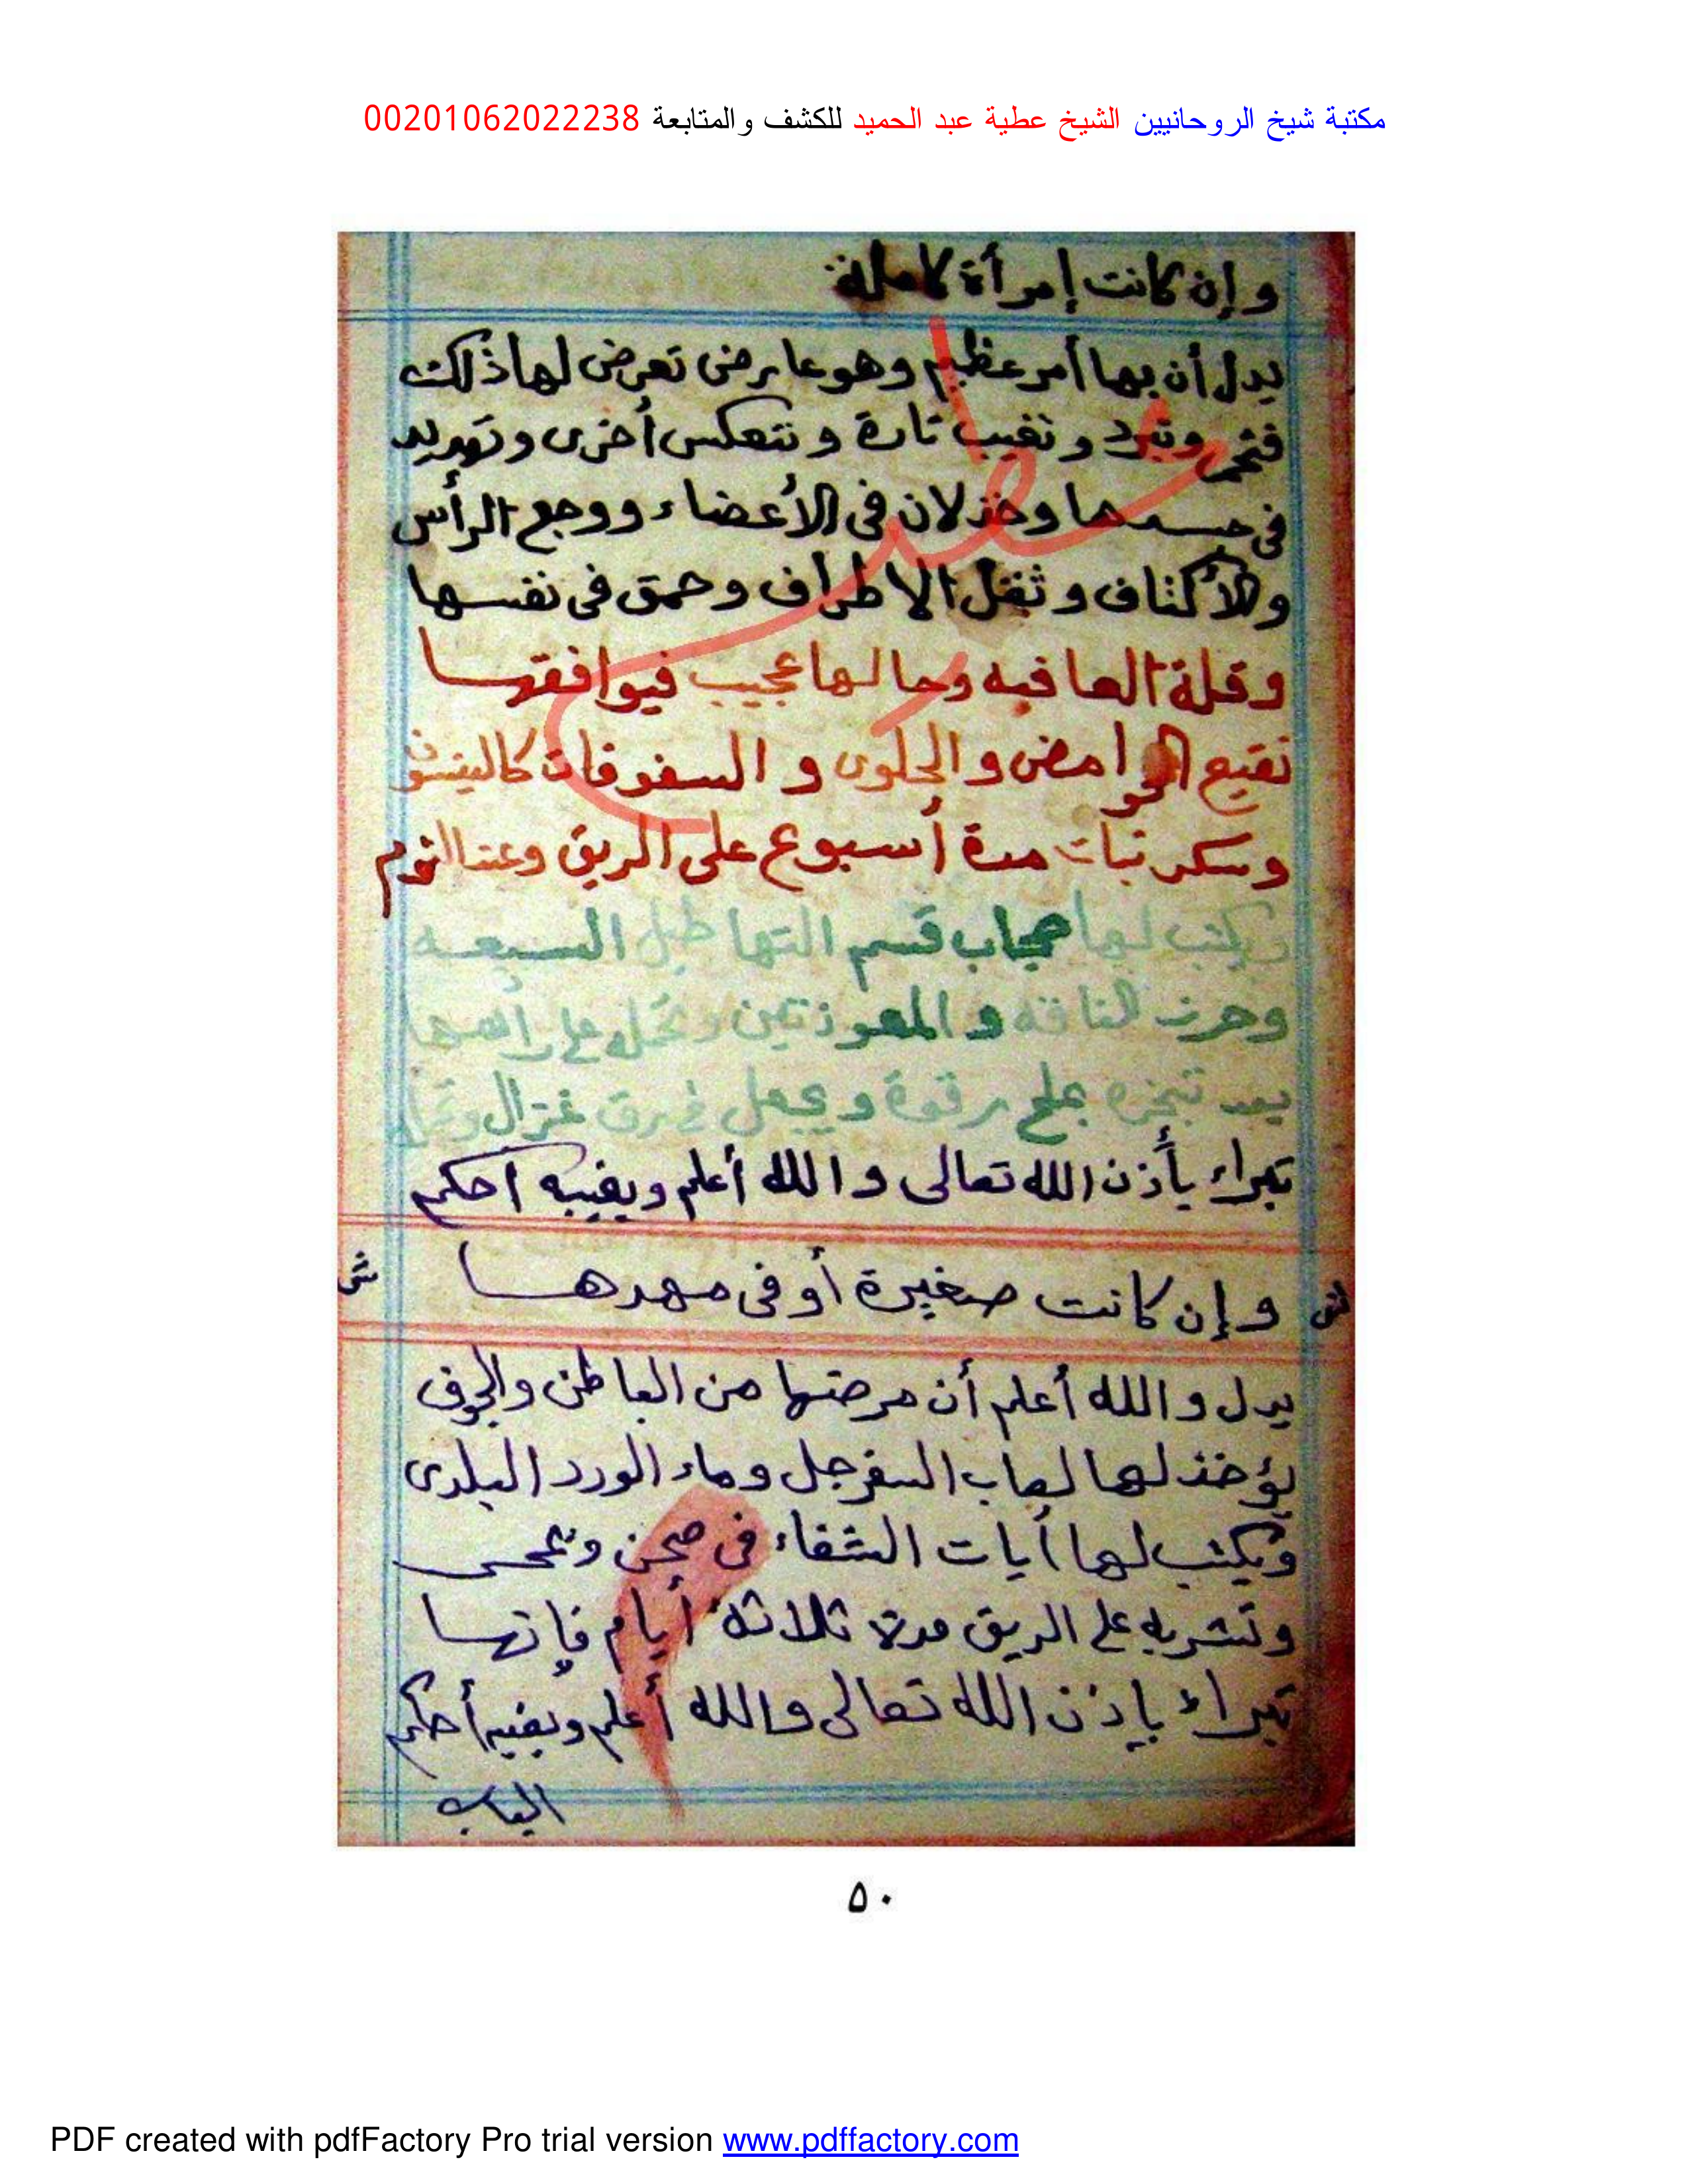 مكتبة شيخ الروحانيين الشيخ عطية عبد الحميد للكشف والمتابعة 00201062022238
وإن كانت إمرأة كاملة
يدل أن بها أمر عظيم وهو عارض تعرض لها ذلك
وتبرد وتغيب تارة وتنعكس أخرى
فى جسمها وخذلان فى الأعضاء ووجع الرأس
والأكتاف وثقل الاطراف وحمق فى نفسها
وقلة العافيه وحالها عجيب فيوافقها
نقيع الحوامض والحلوى و السفوفات كالينسون
وسكر نبات مدة أسبوع على الريق وعند النوم
ويكتب لها حجاب قسم التهاطيل السبعه
وحرز الناقه و المعوذتين وتحمله على رأسها
بعد تبخره بملح وقوة ويجعل فى رق غزال
تبراء بأذن الله تعالى والله أعلم وبغيبه احكم
وإن كانت صغيرة أو فى مهدها
يدل والله أعلم أن مرضها من الباطن والجوف
يؤخذ لها لعاب السفرجل وماء الورد البلدى
ويكتب لها أيات الشفاء فى صحن وتمحى
وتشربه على الريق مدة ثلاثة أيام فإنها
تبراء بإذن الله تعالى والله أعلم وبغيبه أحكم
الباب
٥٠
PDF created with pdfFactory Pro trial version www.pdffactory.com